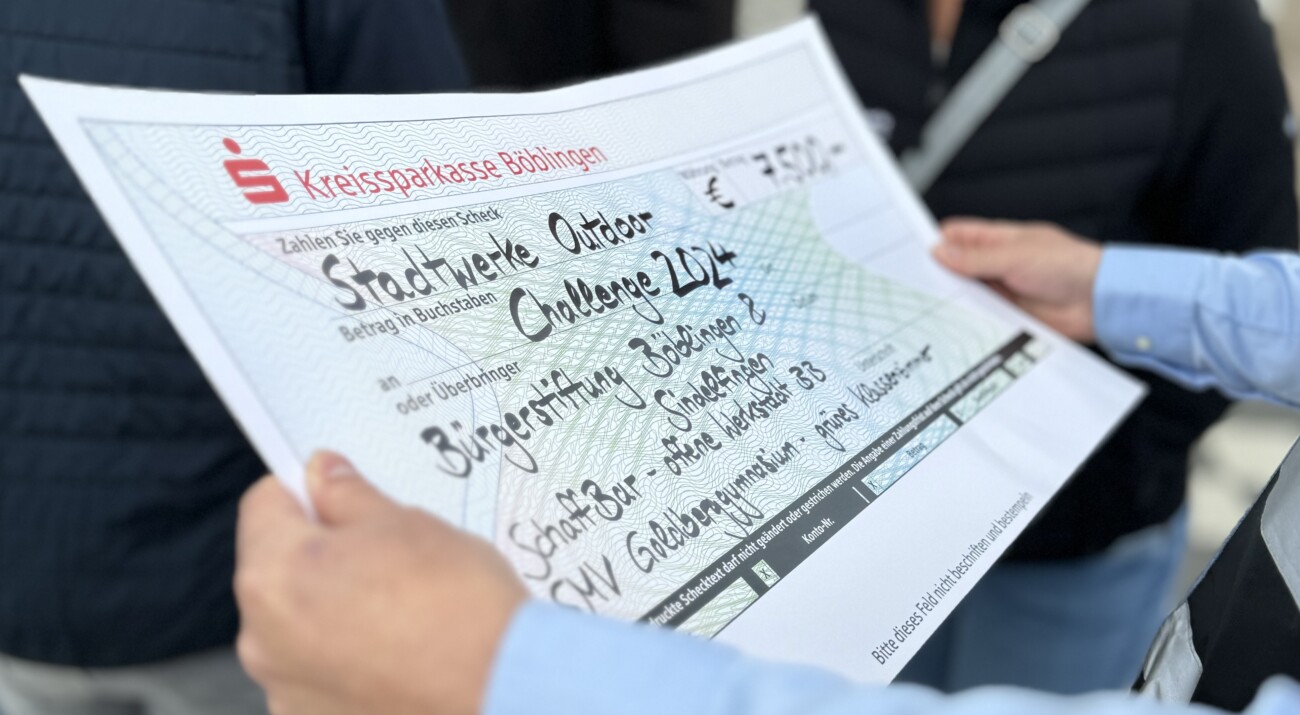 Kreissparkasse Böblingen
€ 7.500,–
Zahlen Sie gegen diesen Scheck
Stadtwerke Outdoor
Betrag in Buchstaben
Challenge 2024
an
oder Überbringer
Bürgerstiftung Böblingen &
Sindelfingen
SchaffBar - offene Werkstadt BB
SMV Goldberggymnasium - grünes Klassenzimmer
druckte Schecktext darf nicht geändert oder gestrichen werden. Die Angabe einer Zahlungsfrist auf
Konto-Nr.
Bitte dieses Feld nicht beschriften und bestempeln